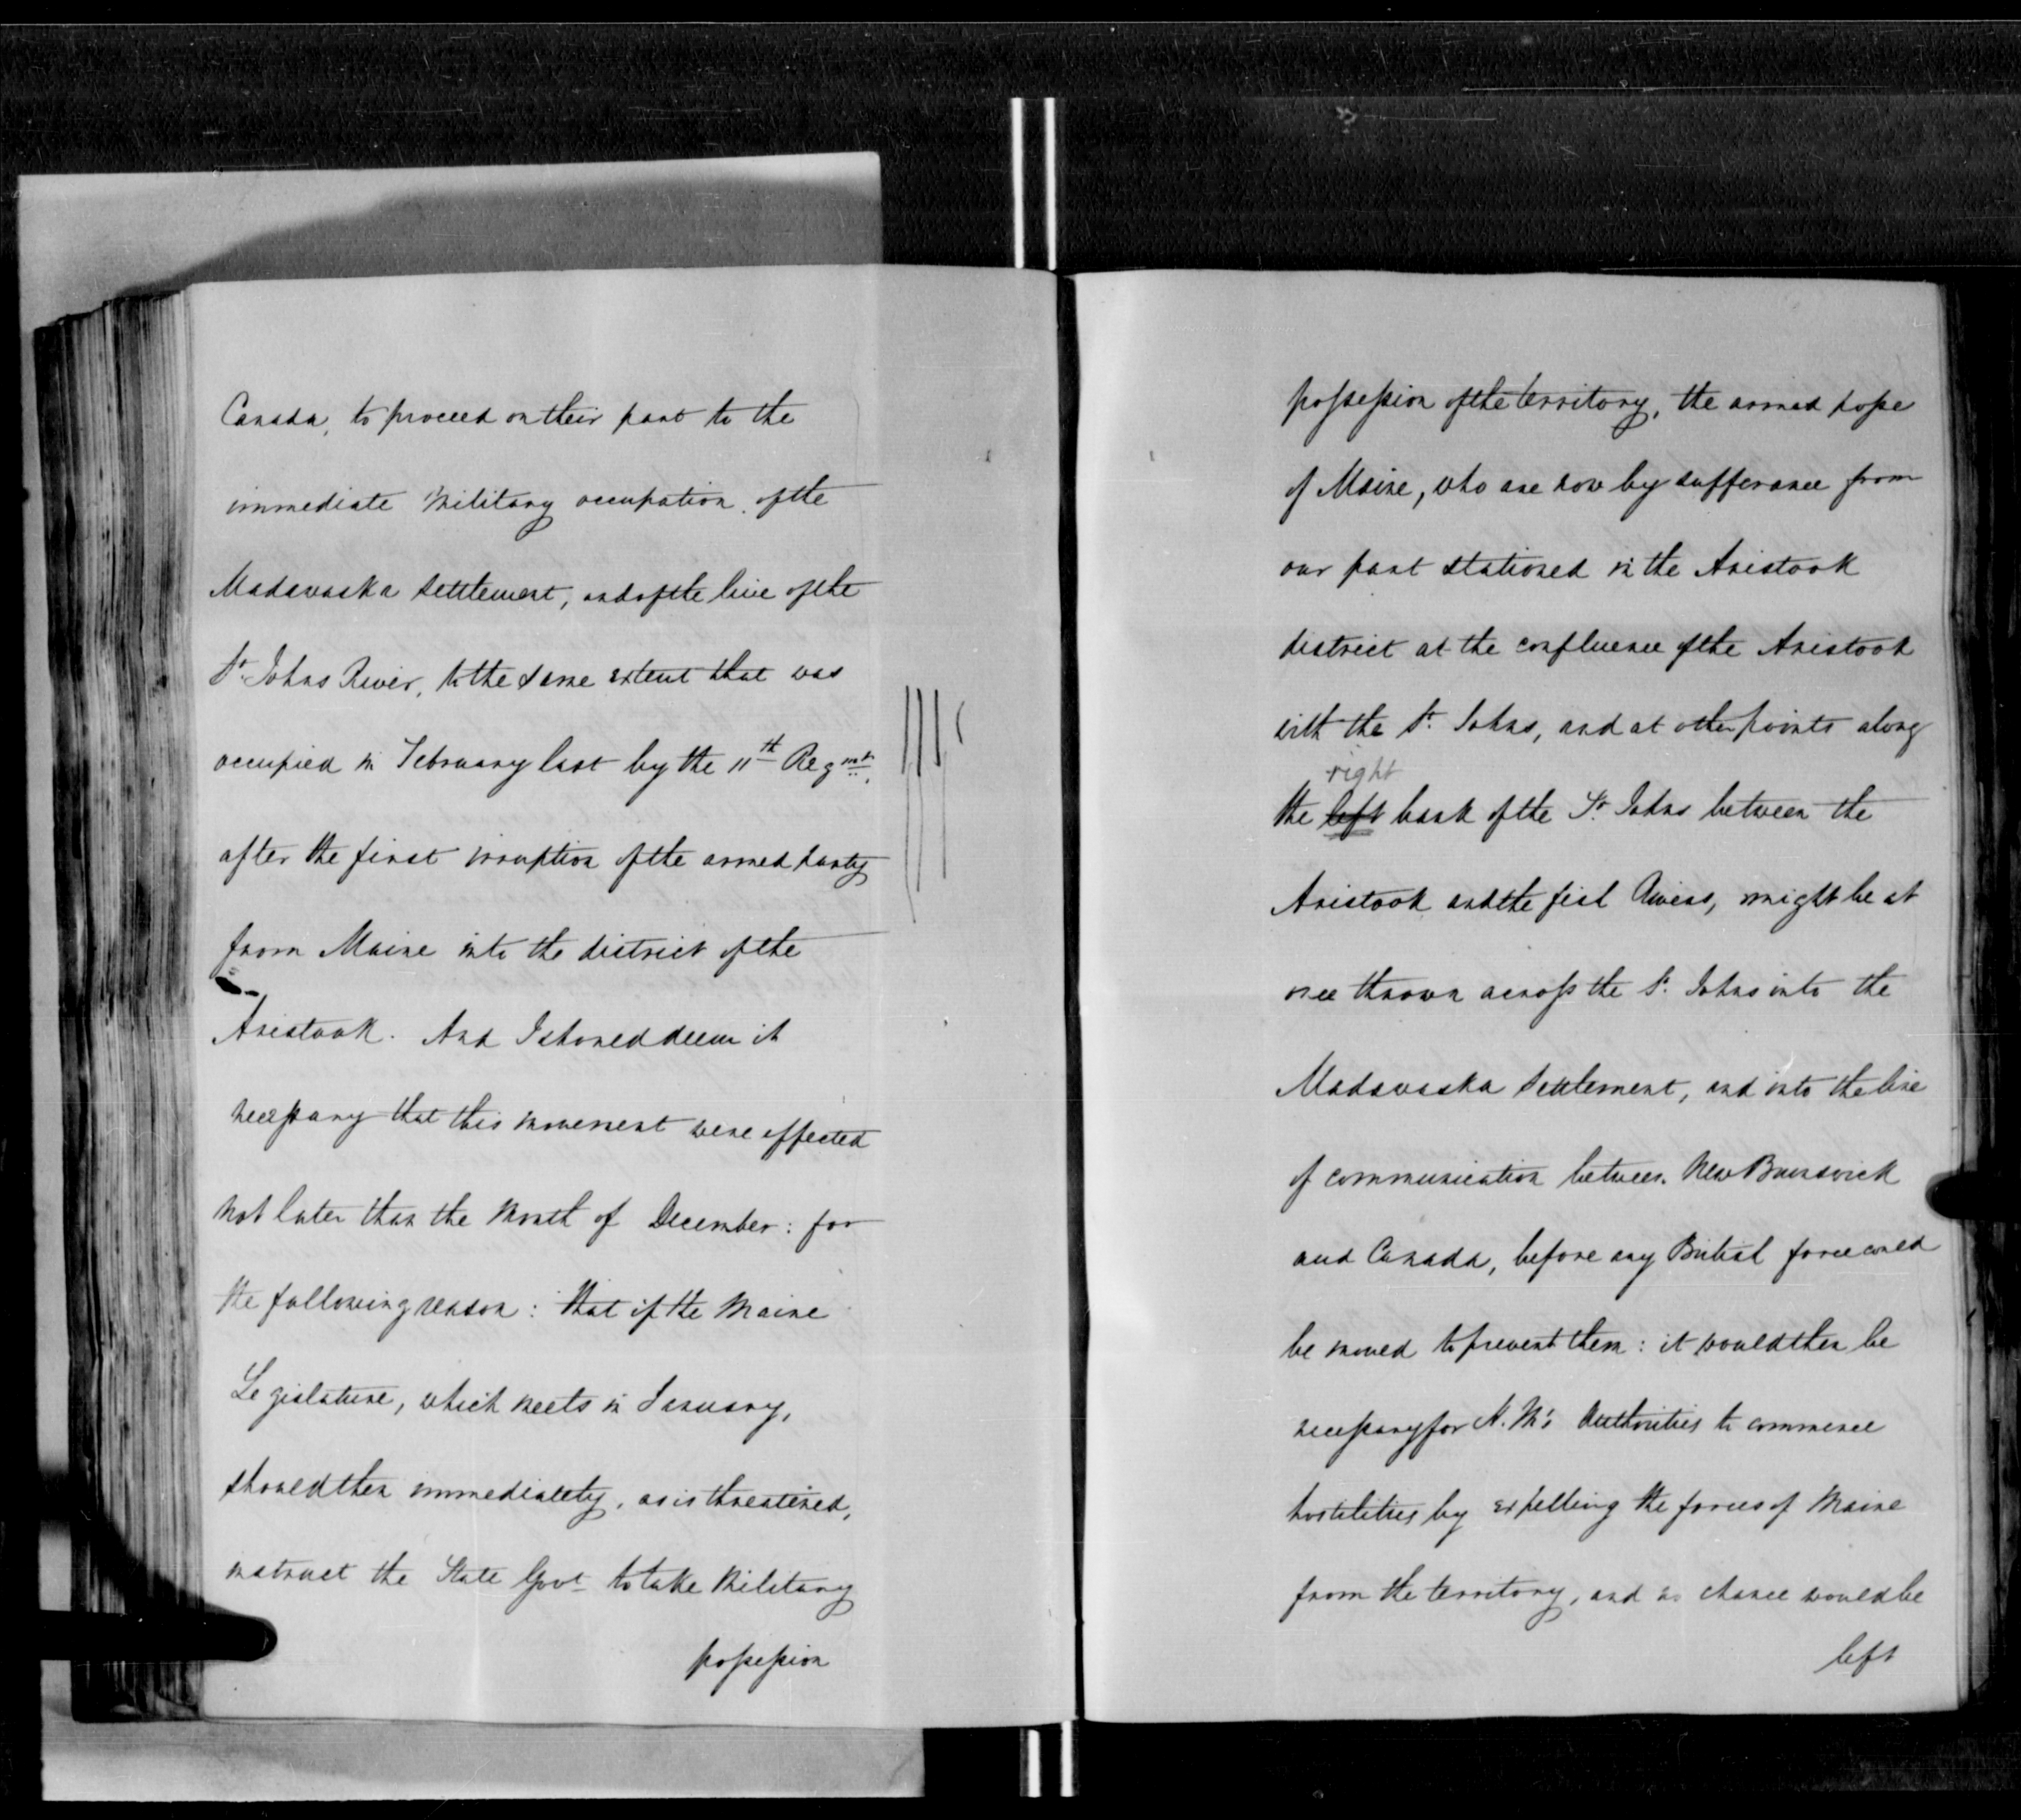 Canada, to proceed on their part to the
immediate Military occupation of the
Madawaska Settlement, and of the line of the
St. Johns River, to the same extent that was
occupied in February last by the 11th Regmt.,
after the first irruption of the armed party
from Maine into the district of the
Aristook. And I should deem it
necessary that this movement were effected
not later than the Month of December: for
the following reason: that if the Maine
Legislature, which meets in January,
should then immediately, as is threatened,
instruct the State Govt to take Military
possession
possession of the territory, the armed posse
of Maine, who are now by sufferance from
our part stationed in the Aristook
district at the confluence of the Aristook
with the St. Johns, and at other points along
right
the left bank of the St. Johns between the
Aristook and the fish Rivers, might be at
once thrown across the St. Johns into the
Madawaska Settlement, and into the line
of communication between New Brunswick
and Canada, before any British force could
be moved to prevent them: it would then be
necessary for H. M's Authorities to commence
hostilities by expelling the forces of Maine
from the territory, and no chance would be
left